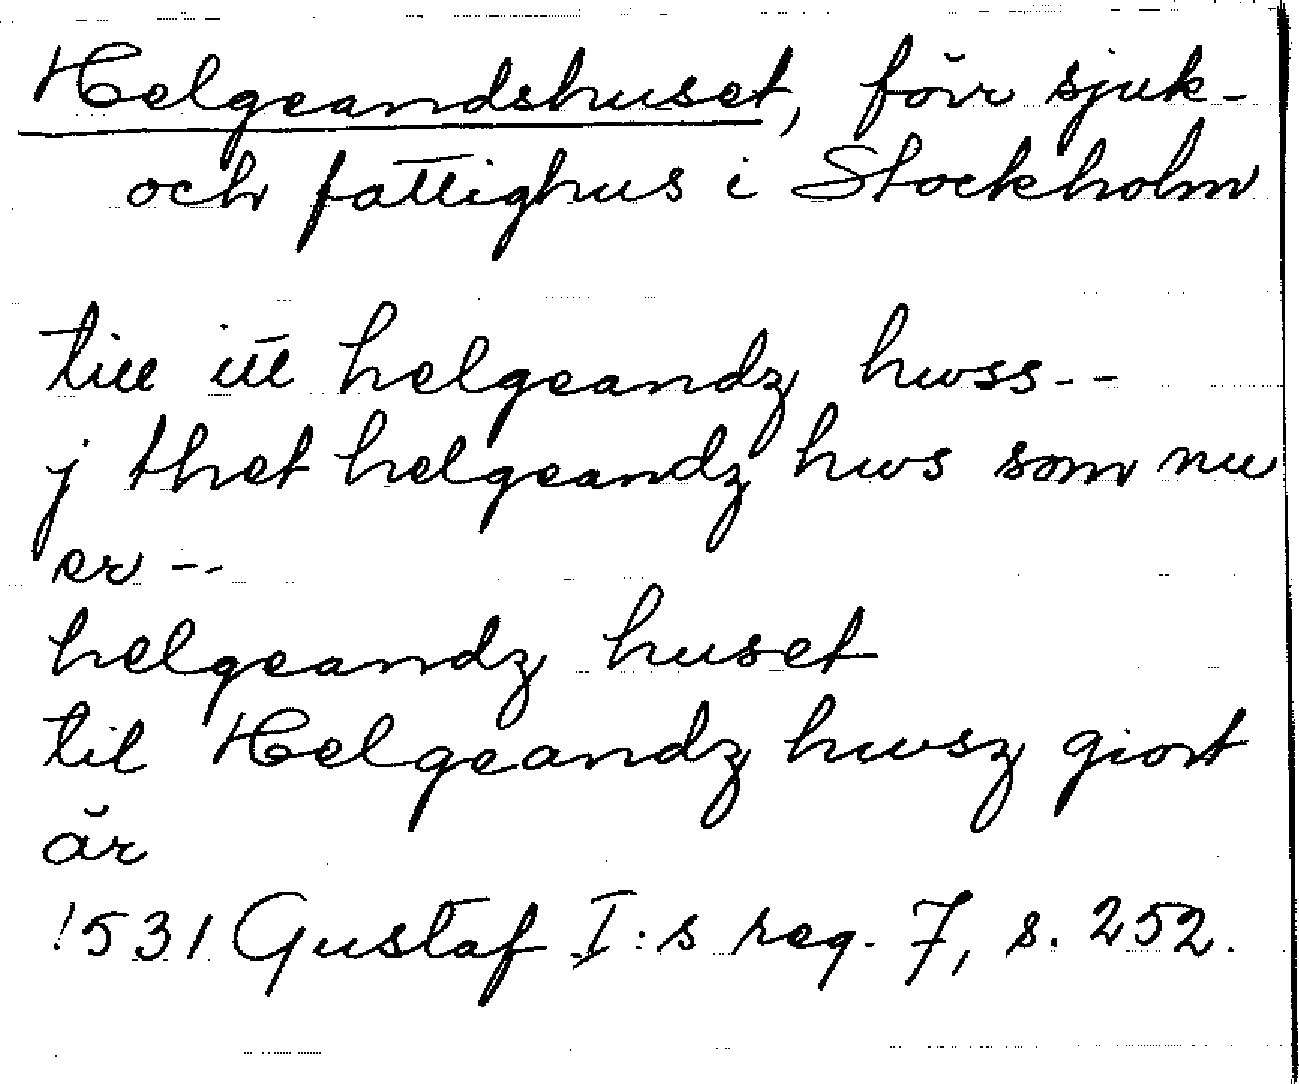 Helgeandshuset, förr sjuk-
och fattighus i Stockholm
till itt helgeandz hwss--
j thet helgeandz hws som nu
er --
helgeandz huset
til Helgeandz hwsz giort
är
1531 Gustaf I:s reg. 7, s. 252.